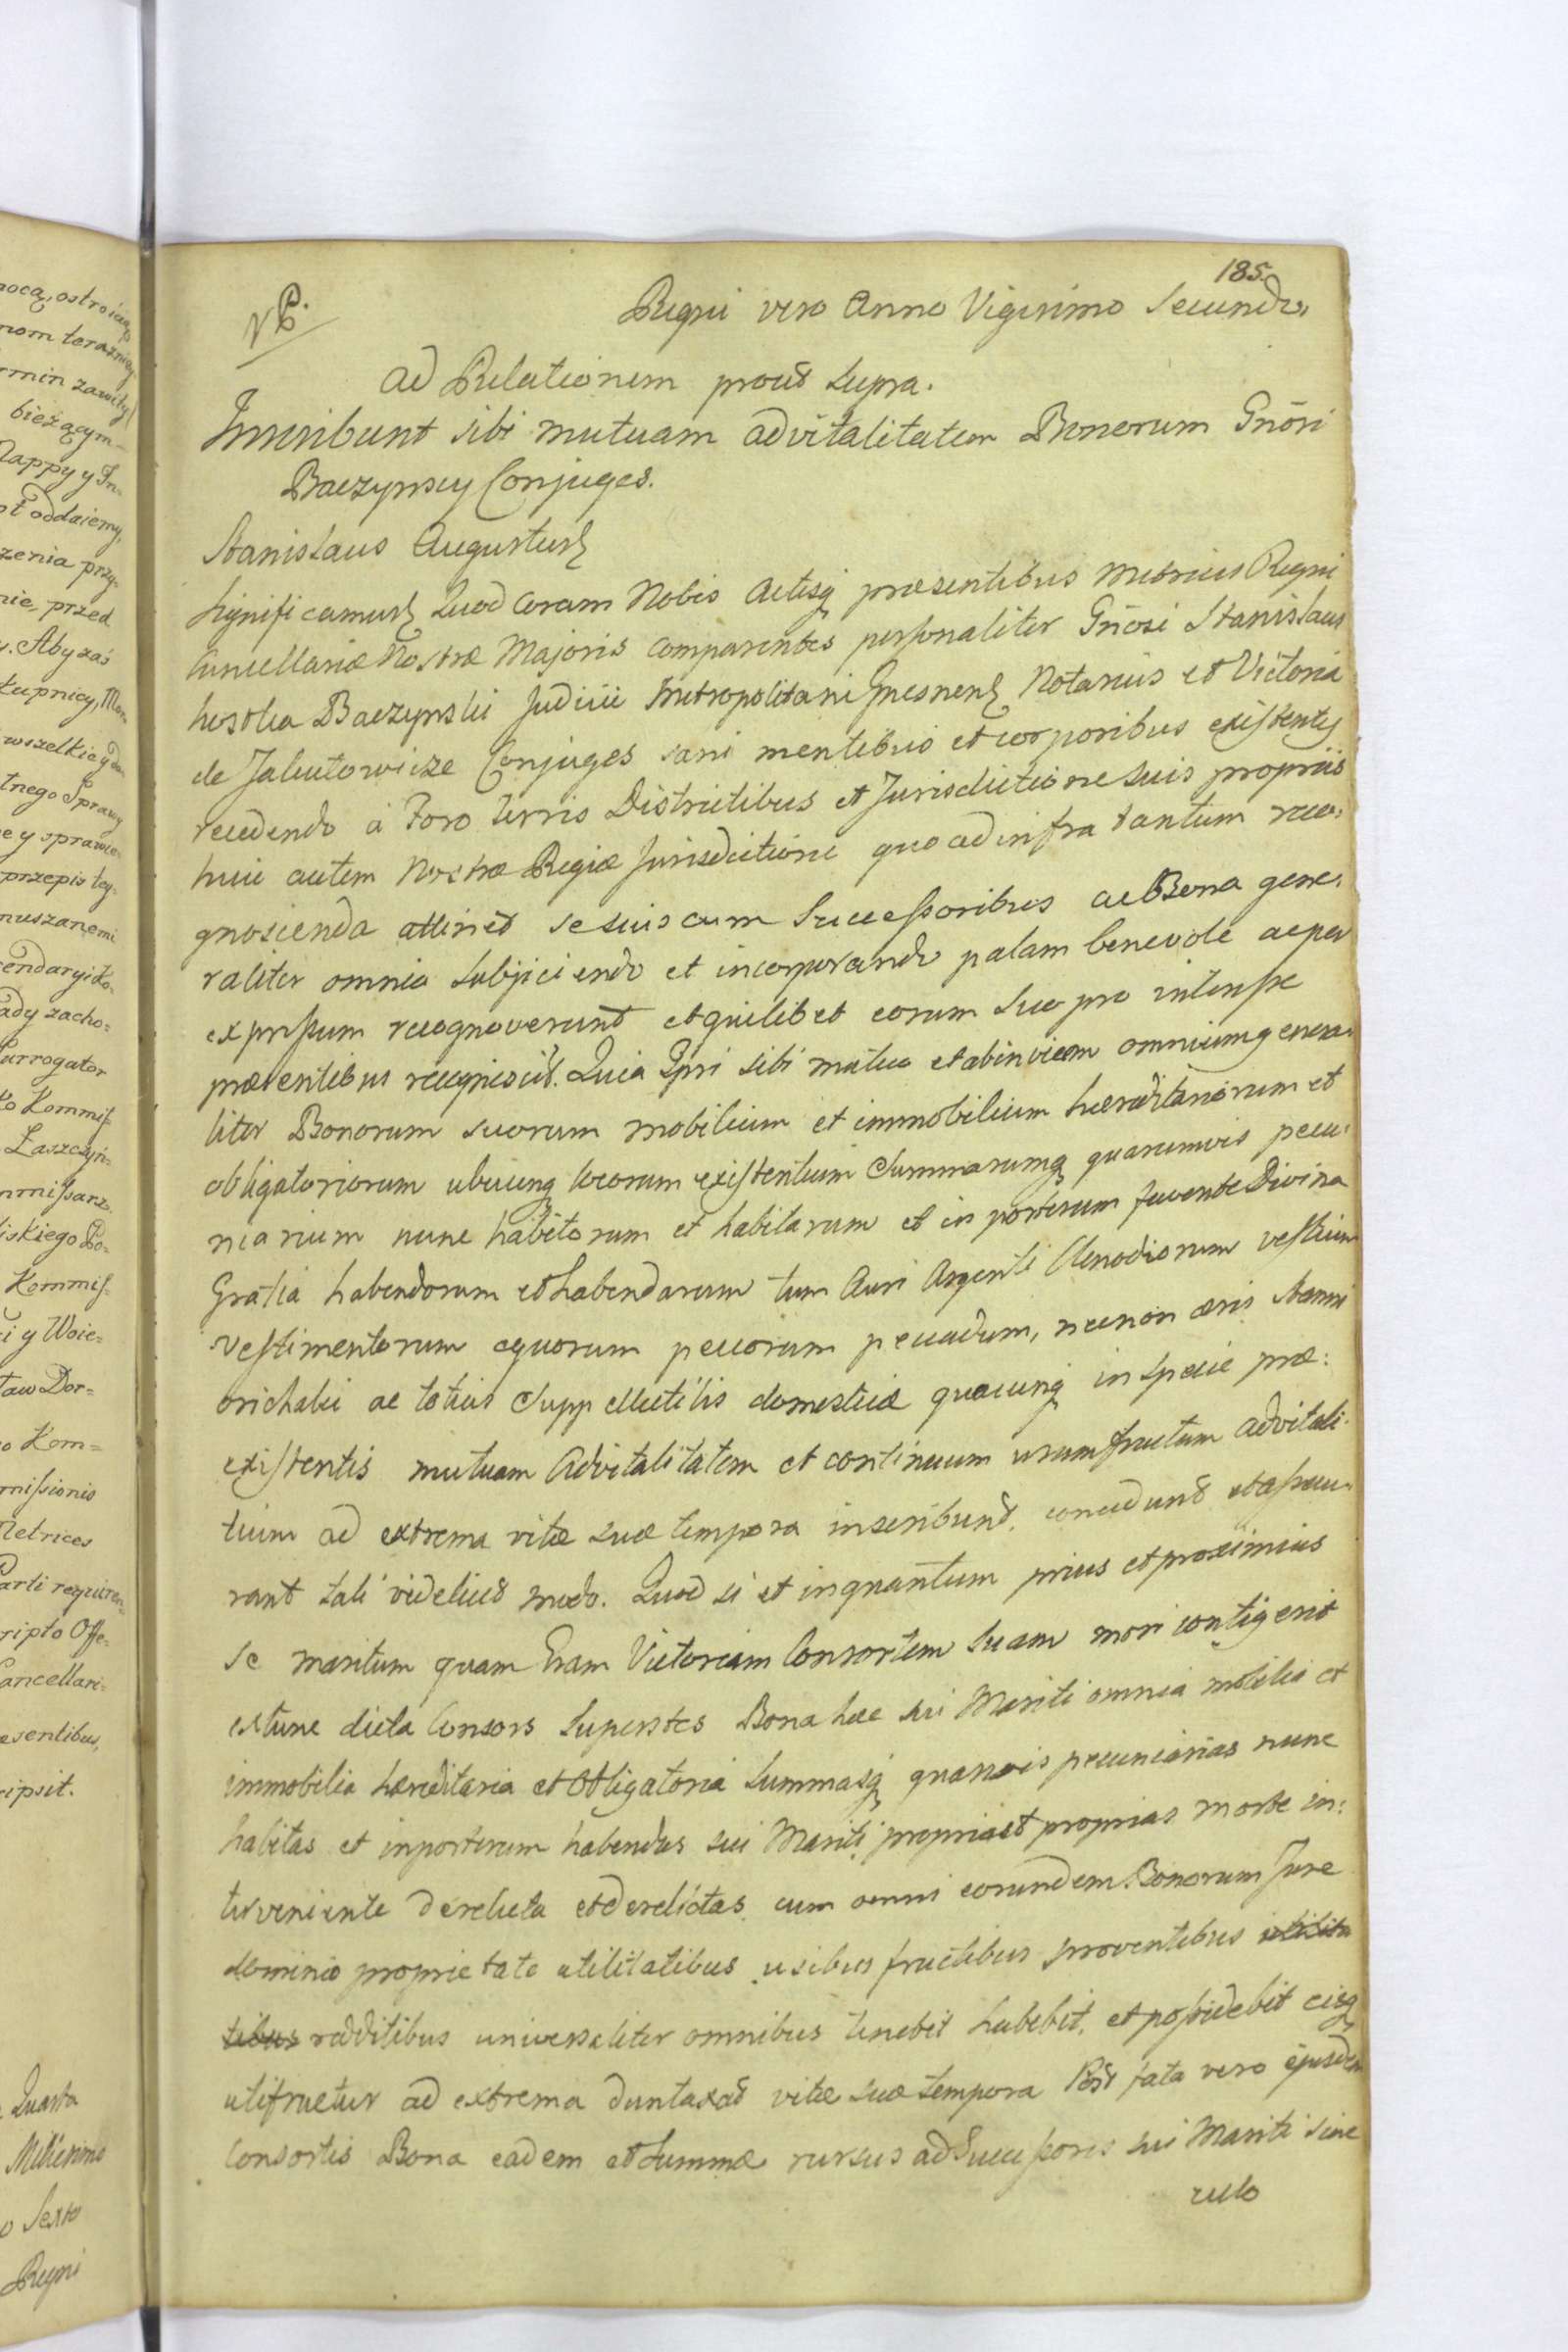 185.
Regni vero Anno Vigesimo Secundo.
Ad Relationem prout Supra.
Inscribunt sibi mutuam advitalitatem Bonorum Gñosi
Baczynscy Conjuges.
Stanislaus Augustus
Significamus Quod Coram Nobis Actisq presentibus Metrices Regni
Cancellariæ Nostræ Majoris comparentes personaliter Gñosi Stanislaus
Kostka Baczynski Judicii Metropolitani Gnesnen Notarius et Victoria
de Jalutowicze Conjuges sani mentibus et corporibus existentes
recedendo à Foro Terris Districtibus et Jurisdictione suis propriis
huic autem Nostræ Regiæ Jurisdictioni quo ad infra tantum reco:
gnoscenda attinet se suis cum Successoribus ac Bona gene:
raliter omnia Subjiciendo et incorporando palam benevole ac per
expressum recognoverunt et quilibet eorum Suo pro interesse
præsentibus recognoscit. Quia Ipsi sibi mutuo et ab invicem omnium genera:
liter Bonorum suorum mobilium et immobilium hæreditariorum et
obligatoriorum ubicunq locorum existentium Summarumq quarumvis pecu:
niarium nunc habitorum et habitarum et in posterum favente Divina
Gratia habendorum et habendarum tum Auri Argenti Clenodiorum vestium
vestimentorum equorum pecorum pecudum, necnon æris stanni
orichalci ac totius Suppellectilis domesticæ quacunq in specie præ:
existentis mutuam Advitalitatem et continuum usumfructum advitali:
tium ad extrema vitæ suæ tempora inscribunt. concedunt et assecu:
rant tali videlicet modo. Quod si et inquantum prius et proximius
Se maritum quam Eram Victoriam Consortem Suam mori contigerit
extunc dicta Consors Superstes Bona hæc sui Mariti omnia mobilia et
immobilia hæreditaria et Obligatoria Summasq quasvis pecuniarias nunc
habitas et in posterum habendas sui Mariti propria et proprias morte in:
terveniente derelicta et derelictas cum omni eorundem Bonorum Jure
dominio proprietate utilitatibus usibus fructibus proventibus utilita
tibus redditibus universaliter omnibus tenebit habebit. et possidebit eisq
utifruetur ad extrema duntaxat vitæ suæ tempora Post fata vero ejusdem
Consortis Bona eadem et Summæ rursus ad Successores sui Mariti sine
ullo